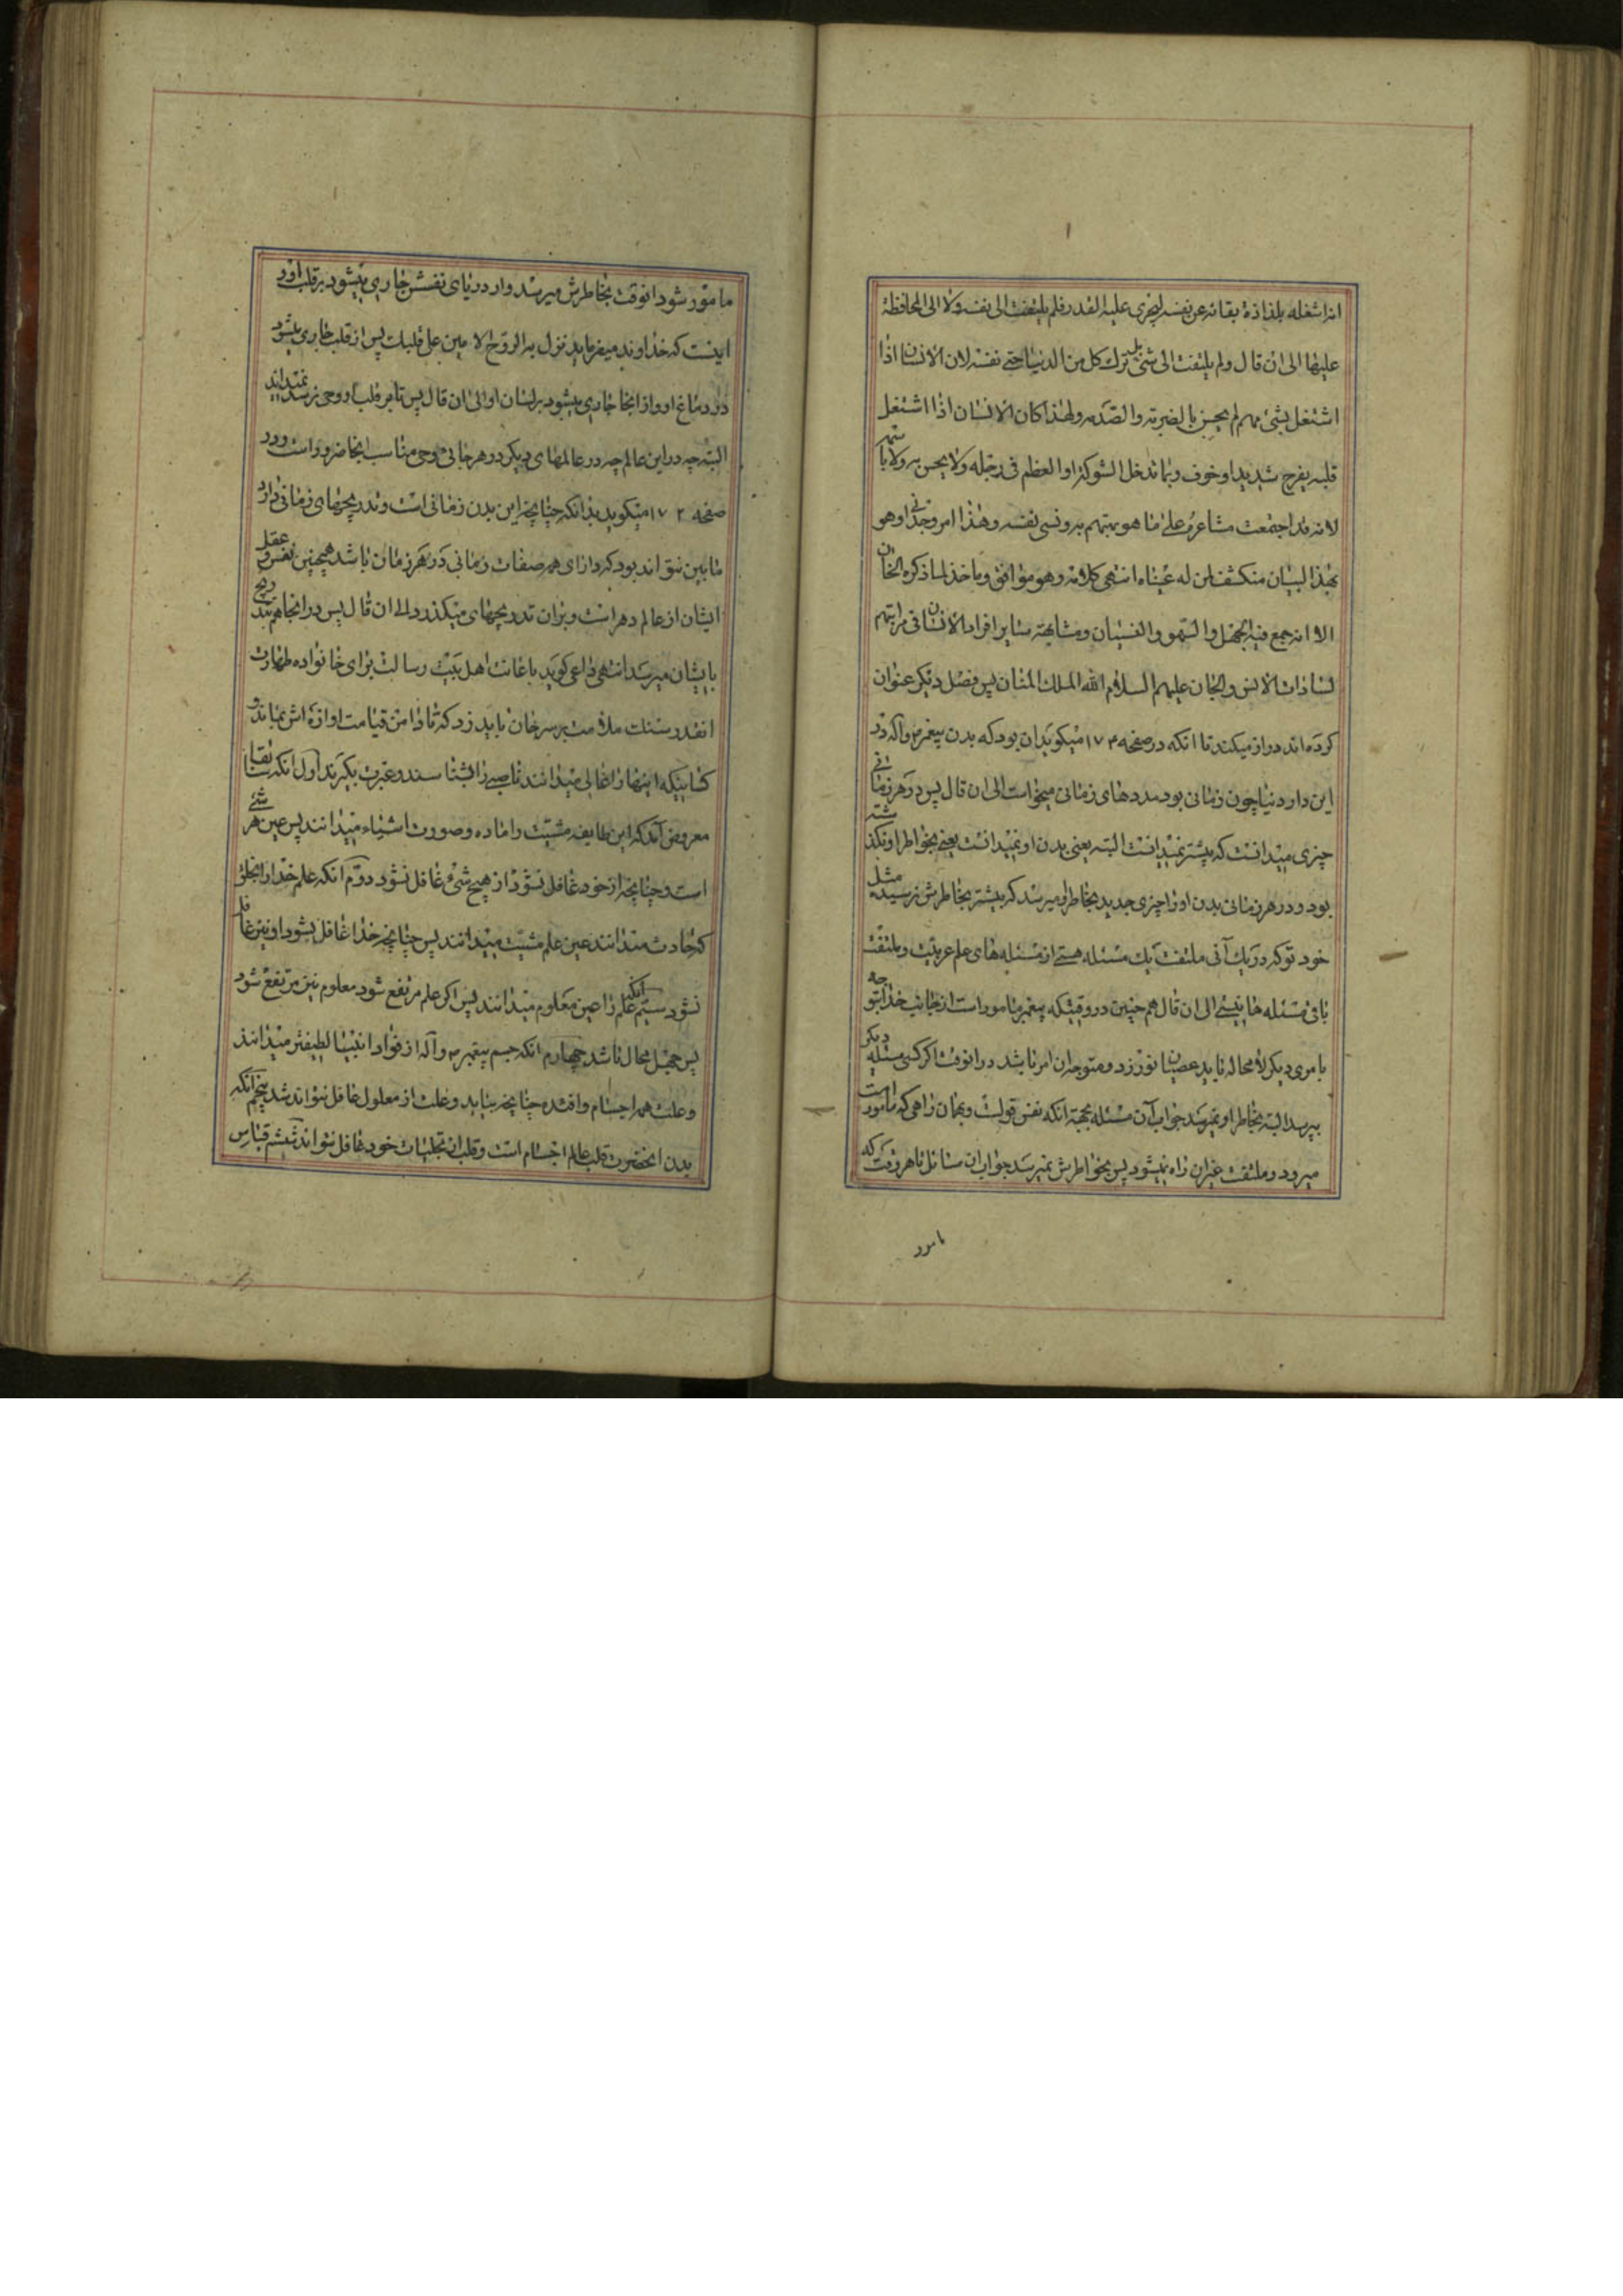 انه اشغله بلذاذة بقائه عن نفسه ليجري عليه القدر فلم يلتفت الى نفسه ولا الى المحافظة
عليها الى ان قال ولم يلتفت الى شئ بل ترك كل من الدنيا حتى نفسه لان الانسان اذا
اشتغل بشئ مهم لم يحس بالضربة والصدمة ولهذا كان الانسان اذا اشتغل
قلبه بفرح شديد او خوف ربما تدخل الشوكة او العظم في رجله ولا يحس به ولا يتألم
لانه قد اجتمعت مشاعره على ما هو مهتم به ونسى نفسه وهذا امر وجداني وهو
بهذا البيان منكشف لمن له عينان انتهى كلامه وهو موافق وماخذ لما ذكره الخان
الا انه جمع فيه الجهل والسهو والنسيان ومشابهة ساير افراد الانسان في مراتبهم
لسادات الانس والجان عليهم السلام الله الملك المنان پس فصل ديكر عنوان
كرده اند دراز ميكند تا انكه در صفحه ۱۷۴ ميكويد ان بود كه بدن پيغمبر ص واله در
اين دار دنيا چون زمانى بود مددهاى زمانى ميخواست الى ان قال پس در هر زمانى
چيزى ميدانست كه پيشتر نميدانست البته يعنى بدن او نميدانست يعنى بخواطر او نكذشته
بود و در هر زمانى بدن او را چيزى جديد بخاطر او ميرسد كه پيشتر بخاطرش نرسيده مثل
خود تو كه در يك آنى ملتفت يك مسئله هستى از مسئله هاى علم عربيت و ملتفت
باقى مسئله ها نيستى الى ان قال هم چنين در وقتيكه پيغمبر مامور است از جانب خدا بتوجه
بامرى ديكر لا محاله بايد عصيان نورزد و متوجه ان امر باشد در انوقت اكر كسى مسئله ديكر
بپرسد البته بخاطر او نميرسد جواب آن مسئله بجهة انكه نفس قولست و بهمان راهى كه مامور است
ميرود و ملتفت غير ان راه نميشود پس بخواطرش نميرسد جواب ان سائل تا هر وقت كه
مامور
مامور شود انوقت بخاطرش ميرسد و از درياى نفسش جارى ميشود بر قلب او و
اينست كه خداوند ميفرمايد نزل به الروح الامين على قلبك پس از قلب جارى ميشود
در دماغ او و از انجا جارى ميشود بر لسان او الى ان قال پس تا بر قلب او وحى نرسد نميداند
البته چه در اين عالم چه در عالمهاى ديكر در هر جائى وحى مناسب انجا ضرور است و در
صفحه ۱۷۲ ميكويد بدانكه چنانچه اين بدن زمانى است و تدريجهاى زمانى دارد
مابين نتواند بود كه داراى همه صفات زمانى در هر زمان باشد همچنين نفس و عقل
ايشان از عالم دهر است و بر ان تدريجهاى ميكذرد الى ان قال پس در انجا هم بتدريج
بايشان ميرسد انتهى داعى كويد باغانت اهل بيت رسالت براى خانواده طهارت
انقدر سنك ملامت بر سر خان بايد زد كه تا دامن قيامت اوازه اش بماند و
كسانيكه اينها را غالى ميدانند ناصبى را بشناسند و عبرت بكيرند اول انكه سابقا
معروض آمد كه اين طايفه مشيت را ماده و صورت اشياء ميدانند پس عين هر شئ
است و چنانچه از خود غافل نشود از هيچ شئ غافل نشود دوم انكه علم خدا را بخلق
كه حادث ميدانند عين علم مشيت ميدانند پس چنانچه خدا غافل نشود او نيز غافل
نشود سيم انكه علم را عين معلوم ميدانند پس اكر علم مرتفع شود معلوم نيز مرتفع شود
پس جهل محال باشد چهارم انكه جسم پيغمبر ص و آله از فواد انبيا لطيفتر ميدانند
و علت همه اجسام و افئده چنانچه بيايد و علت از معلول غافل نتواند شد پنجم انكه
بدن انحضرت قلب عالم اجسام است و قلب از تجليات خود غافل نتواند ششم قياس